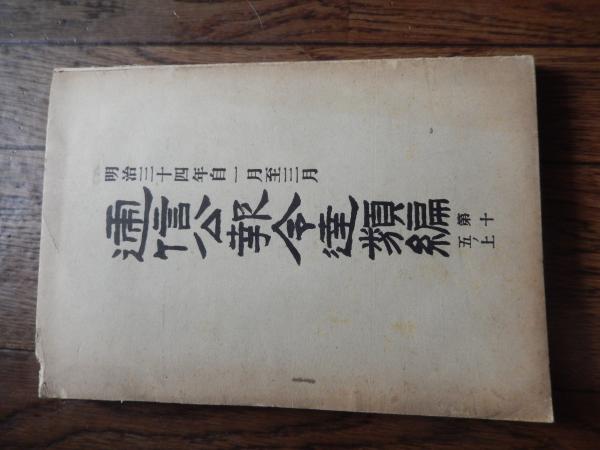 明治三十四年自一月至三月
遞信公報令達類編
第十
五ノ上